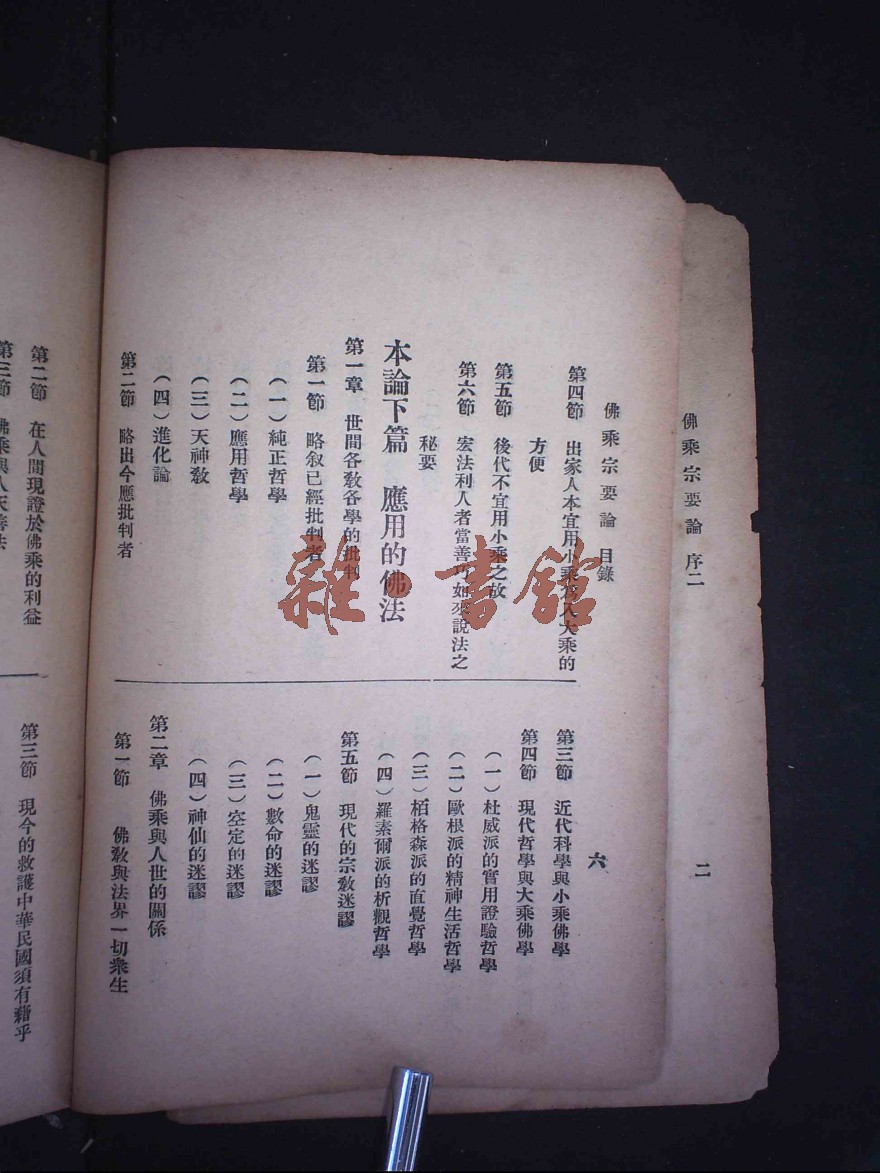 佛乘宗要論 序二
二
佛乘宗要論 目錄
六
第四節 出家人本宜用小乘為入大乘的
方便
第五節 後代不宜用小乘之故
第六節 宏法利人者當善巧如來說法之
秘要
本論下篇 應用的佛法
第一章 世間各敎各學的批判
第一節 略叙已經批判者
（一）純正哲學
（二）應用哲學
（三）天神敎
（四）進化論
第二節 略出今應批判者
第三節 近代科學與小乘佛學
第四節 現代哲學與大乘佛學
（一）杜威派的實用證驗哲學
（二）歐根派的精神生活哲學
（三）栢格森派的直覺哲學
（四）羅素爾派的析觀哲學
第五節 現代的宗敎迷謬
（一）鬼靈的迷謬
（二）數命的迷謬
（三）空定的迷謬
（四）神仙的迷謬
第二章 佛乘與人世的關係
第一節 佛敎與法界一切衆生
第二節 在人間現證於佛乘的利益
第三節 佛乘與人天善法
第三節 現今的救護中華民國須有藉乎
雜·書館